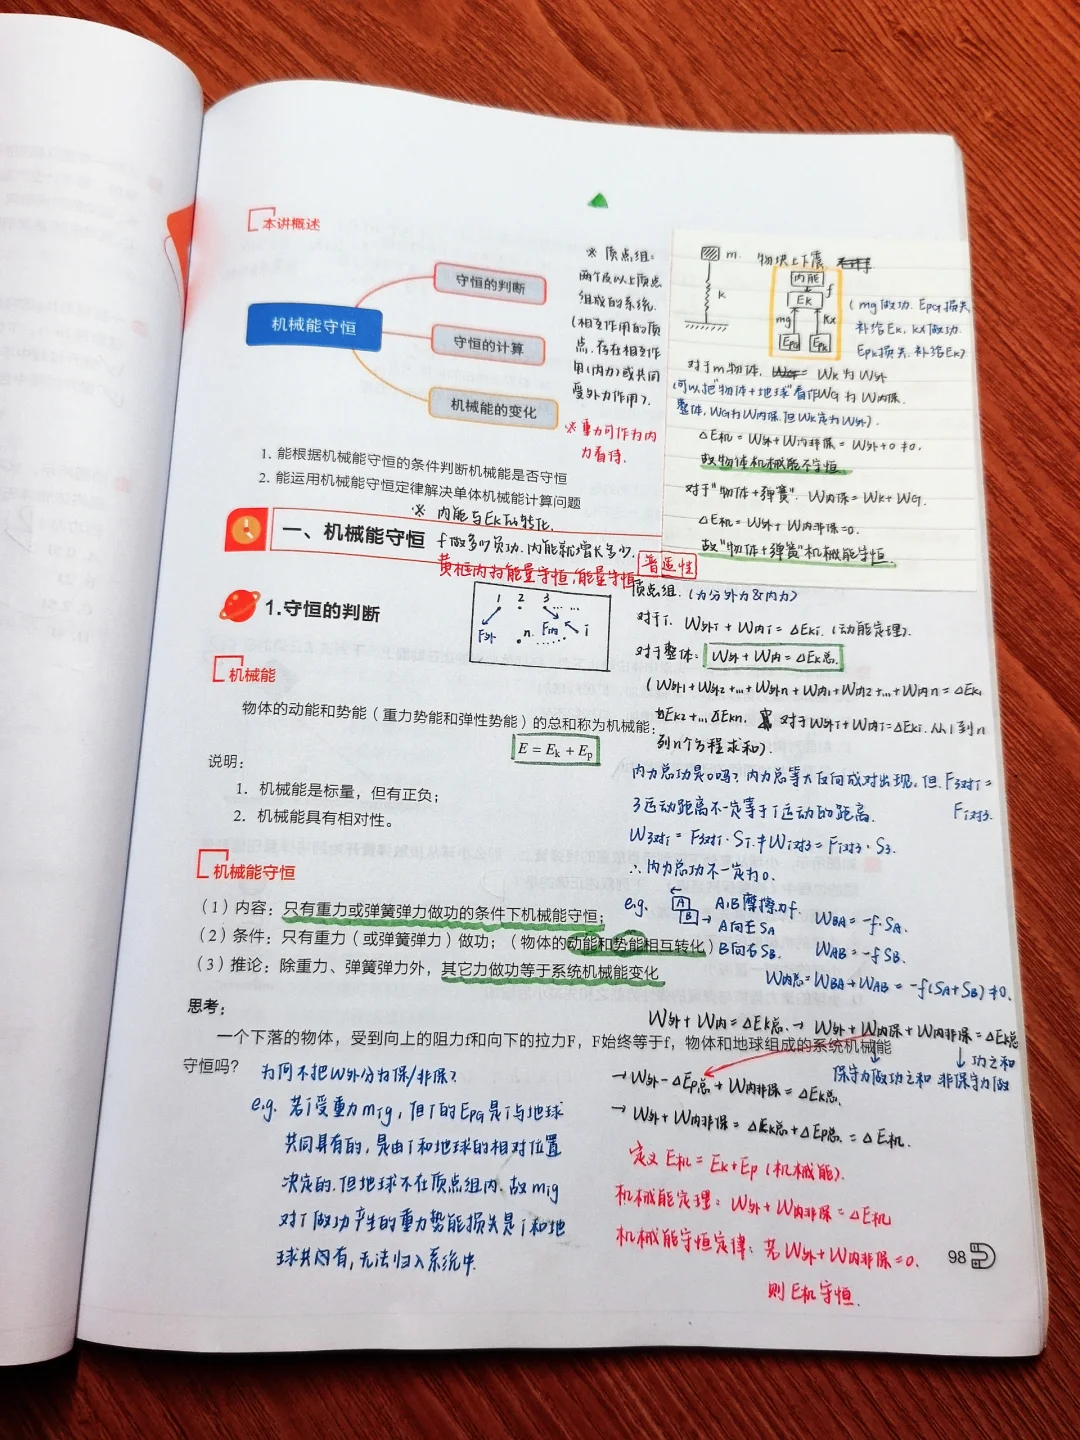 本讲概述
机械能守恒
守恒的判断
守恒的计算
机械能的变化
※ 顶点组：
两个及以上顶点
组成的系统.
(相互作用的顶
点.存在相互作
用(内力)或共同
受外力作用).
※重力可作为内
力看待.
m.
k
物块上下震
内能
f
Ek
mg
kx
EpG
Epk
(mg做功. EpG损失
补给Ek, kx做功.
Epk损失,补给Ek)
对于m物体. Wk为W外
(可以把"物体+地球"看作WG为W内保.
整体, WG为W内保.但Wk定为W外).
△E机=W外+W内非保=W外+0≠0.
故物体机械能不守恒
对于"物体+弹簧". W内保=Wk+WG.
△E机=W外+W内非保=0.
故"物体+弹簧"机械能守恒.
1. 能根据机械能守恒的条件判断机械能是否守恒
2. 能运用机械能守恒定律解决单体机械能计算问题
※ 内能与Ek可转化.
一、机械能守恒
f做多少负功.内能就增长多少.
黄框内均能量守恒,能量守恒
普适性
1.守恒的判断
1 2 3 ... ...
F外 n F内 i
顶点组.(力分外力&内力)
对于i. W外i+W内i=△Eki.(动能定理).
对于整体: W外+W内=△Ek总.
(W外1+W外2+...+W外n+W内1+W内2+...+W内n=△Ek1
+△Ek2+...△Ekn. 对于W外i+W内i=△Eki.从1到n
列n个方程求和).
机械能
物体的动能和势能（重力势能和弹性势能）的总和称为机械能；
E = Ek + Ep
说明：
1. 机械能是标量，但有正负；
2. 机械能具有相对性。
内力总功是0吗？内力总等大反向成对出现,但F3对i=
Fi对3.
3运动距离不一定等于i运动的距离.
W3对i=F3对i·Si≠Wi对3=Fi对3·S3.
∴内力总功不一定为0.
e.g.
A
B
A,B摩擦力f.
A向左SA
B向右SB.
WBA=-f·SA.
WAB=-f SB.
W内总=WBA+WAB=-f(SA+SB)≠0.
机械能守恒
（1）内容：只有重力或弹簧弹力做功的条件下机械能守恒；
（2）条件：只有重力（或弹簧弹力）做功；（物体的动能和势能相互转化）
（3）推论：除重力、弹簧弹力外，其它力做功等于系统机械能变化
思考：
一个下落的物体，受到向上的阻力f和向下的拉力F，F始终等于f，物体和地球组成的系统机械能
守恒吗？
W外+W内=△Ek总→W外+W内保+W内非保=△Ek总
保守力做功之和
非保守力做
功之和
→W外-△Ep总+W内非保=△Ek总.
→W外+W内非保=△Ek总+△Ep总=△E机.
定义E机=Ek+Ep(机械能).
机械能定理: W外+W内非保=△E机
机械能守恒定律: 若W外+W内非保=0.
则E机守恒.
为何不把W外分为保/非保？
e.g. 若i受重力mig, 但i的EpG是i与地球
共同具有的,是由i和地球的相对位置
决定的.但地球不在顶点组内.故mig
对i做功产生的重力势能损失是i和地
球共同有,无法归入系统中.
98